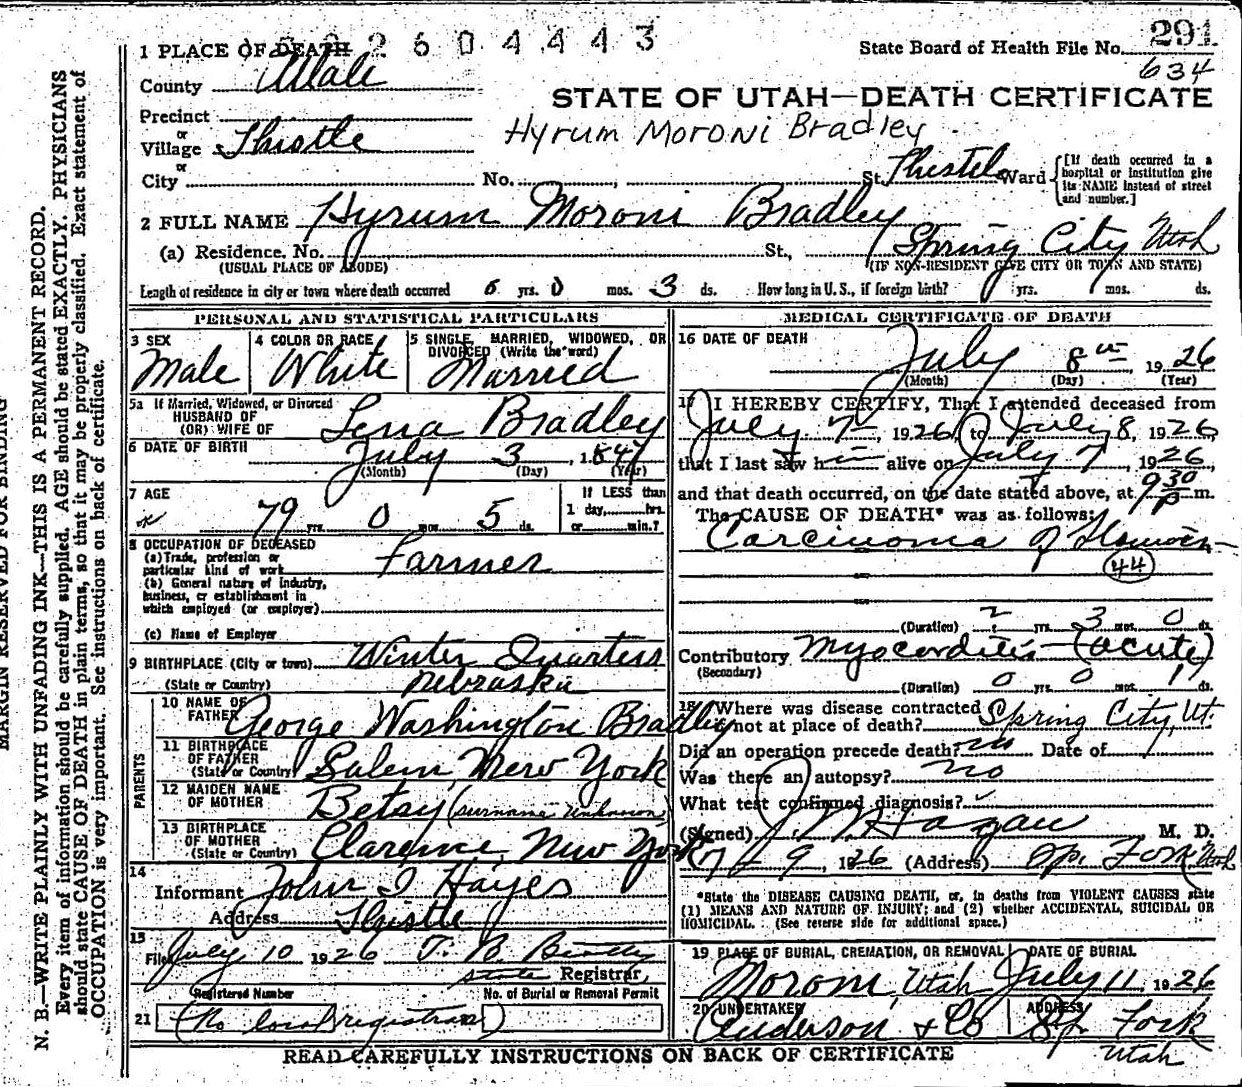 2604443
1 PLACE OF DEATH
State Board of Health File No. 291
634
County
STATE OF UTAH—DEATH CERTIFICATE
Precinct
or
Village Thistle
Hyrum Moroni Bradley
or
City No. , St. Thistel Ward
[If death occurred in a hospital or institution give its NAME instead of street and number.]
2 FULL NAME Hyrum Moroni Bradley
(a) Residence. No. St., Spring City Utah
(USUAL PLACE OF ABODE) (IF NON-RESIDENT GIVE CITY OR TOWN AND STATE)
Length of residence in city or town where death occurred yrs. 0 mos. 3 ds. How long in U. S., if foreign birth? yrs. mos. ds.
PERSONAL AND STATISTICAL PARTICULARS
3 SEX
Male
4 COLOR OR RACE
White
5 SINGLE, MARRIED, WIDOWED, OR DIVORCED (Write the word)
Married
5a If Married, Widowed, or Divorced
HUSBAND OF
(OR) WIFE OF Lena Bradley
6 DATE OF BIRTH July 3, 1847
(Month) (Day) (Year)
7 AGE
79 yrs. 0 mos. 5 ds.
If LESS than
1 day, hrs.
or min.?
8 OCCUPATION OF DECEASED
(a) Trade, profession or
particular kind of work Farmer
(b) General nature of industry,
business, or establishment in
which employed (or employer)
(c) Name of Employer
9 BIRTHPLACE (City or town) Winter Quarters
(State or Country) Nebraska
PARENTS
10 NAME OF
FATHER George Washington Bradley
11 BIRTHPLACE
OF FATHER
(State or Country) Salem, New York
12 MAIDEN NAME
OF MOTHER Betsy (surname unknown)
13 BIRTHPLACE
OF MOTHER
(State or Country) Clarence, New York
14
Informant John I Hayes
Address Thistle
15
Filed July 10 1926 T. B. Beatty
State Registrar,
Registered Number No. of Burial or Removal Permit
21 (No local registrar)
MEDICAL CERTIFICATE OF DEATH
16 DATE OF DEATH
July 8th 1926
(Month) (Day) (Year)
17 I HEREBY CERTIFY, That I attended deceased from
July 7, 1926, to July 8, 1926,
that I last saw h alive on July 7, 1926,
and that death occurred, on the date stated above, at 9 30 P m.
The CAUSE OF DEATH* was as follows:
Carcinoma of
(44)
(Duration) 2 yrs. 3 mos. 0 ds.
Contributory Myocarditis (acute)
(Secondary)
(Duration) 0 yrs. 0 mos. ds.
18 Where was disease contracted
if not at place of death? Spring City, Ut.
Did an operation precede death? no Date of
Was there an autopsy? no
What test confirmed diagnosis?
(Signed) J. W. Hagan, M. D.
7-9, 1926 (Address) Sp. Fork Utah
*State the DISEASE CAUSING DEATH, or, in deaths from VIOLENT CAUSES state
(1) MEANS AND NATURE OF INJURY; and (2) whether ACCIDENTAL, SUICIDAL OR
HOMICIDAL. (See reverse side for additional space.)
19 PLACE OF BURIAL, CREMATION, OR REMOVAL
Moroni, Utah
DATE OF BURIAL
July 11, 1926
20 UNDERTAKER
Anderson & Co
ADDRESS
Sp. Fork
Utah
READ CAREFULLY INSTRUCTIONS ON BACK OF CERTIFICATE
MARGIN RESERVED FOR BINDING
N. B.—WRITE PLAINLY WITH UNFADING INK—THIS IS A PERMANENT RECORD.
Every item of information should be carefully supplied. AGE should be stated EXACTLY. PHYSICIANS
should state CAUSE OF DEATH in plain terms, so that it may be properly classified. Exact statement of
OCCUPATION is very important. See instructions on back of certificate.